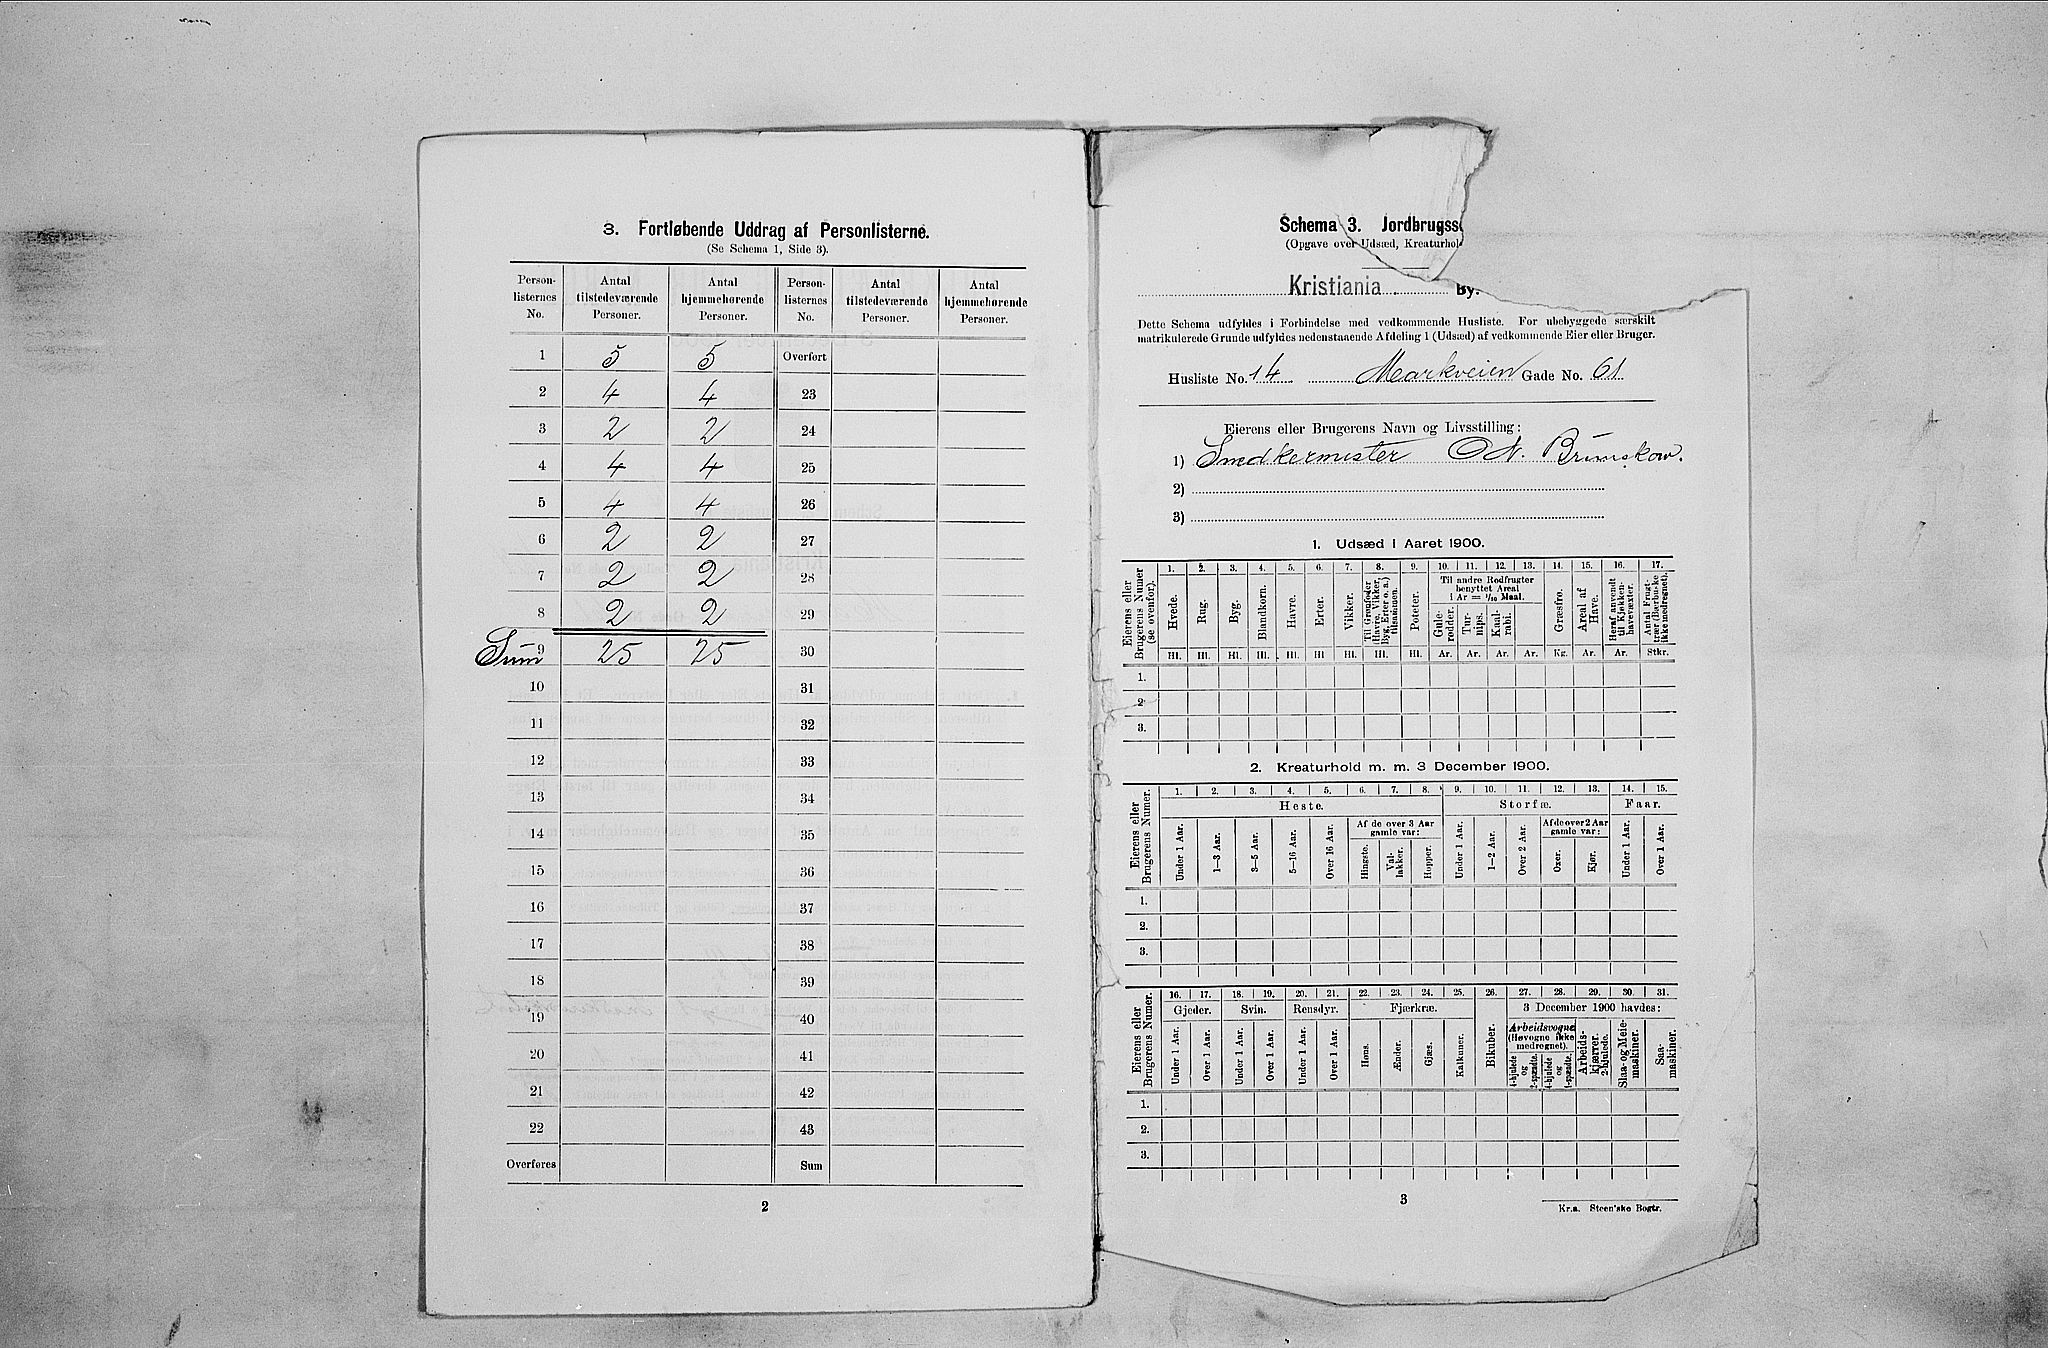 3. Fortløbende Uddrag af Personlisterne.
(Se Schema 1, Side 3).
Person-listernes No. | Antal tilstedeværende Personer. | Antal hjemmehørende Personer. | Person-listernes No. | Antal tilstedeværende Personer. | Antal hjemmehørende Personer.
1 5 5 Overført
2 4 4 23
3 2 2 24
4 4 4 25
5 4 4 26
6 2 2 27
7 2 2 28
8 2 2 29
Sum 9 25 25 30
10 31
11 32
12 33
13 34
14 35
15 36
16 37
17 38
18 39
19 40
20 41
21 42
22 43
Overføres Sum
2
Schema 3. Jordbrugss
(Opgave over Udsæd, Kreaturhol
Kristiania By.
Dette Schema udfyldes i Forbindelse med vedkommende Husliste. For ubebyggede særskilt
matrikulerede Grunde udfyldes nedenstaaende Afdeling 1 (Udsæd) af vedkommende Eier eller Bruger.
Husliste No. 14 Markveien Gade No. 61
Eierens eller Brugerens Navn og Livsstilling:
1) Snedkermester
2)
3)
1. Udsæd i Aaret 1900.
Eierens eller Brugerens Numer (se ovenfor).
1. 2. 3. 4. 5. 6. 7. 8. 9. 10. 11. 12. 13. 14. 15. 16. 17.
Til andre Rodfrugter benyttet Areal i Ar = 1/10 Maal.
Hvede. Rug. Byg. Blandkorn. Havre. Erter. Vikker. Til Grønfoder Havre, Vikker, Byg, Erter o. a.) tilsammen. Poteter. Gule-rødder. Tur-nips. Kaal-rabi. Græsfrø. Areal af Have. Heraf anvendt til Kjøkken-havevæxter. Antal Frugt-trær (Bærbuske ikke medregnet).
Hl. Hl. Hl. Hl. Hl. Hl Hl. Hl. Hl. Ar. Ar. Ar. Ar. Kg. Ar. Ar. Stkr.
1.
2.
3.
2. Kreaturhold m. m. 3 December 1900.
Eierens eller Brugerens Numer.
1. 2. 3. 4. 5. 6. 7. 8. 9. 10. 11. 12. 13. 14. 15.
Heste. Storfæ. Faar.
Af de over 3 Aar gamle var: Af de over 2 Aar gamle var:
Under 1 Aar. 1—3 Aar. 3—5 Aar. 5—16 Aar. Over 16 Aar. Hingste. Val-lakker. Hopper. Under 1 Aar. 1—2 Aar. Over 2 Aar. Oxer. Kjør. Under 1 Aar. Over 1 Aar.
1.
2.
3.
Eierens eller Brugerens Numer.
16. 17. 18. 19. 20. 21. 22. 23. 24. 25. 26. 27. 28. 29. 30. 31.
Gjeder. Svin. Rensdyr. Fjærkræ. 3 December 1900 havdes:
Arbeidsvogne (Høvogne ikke medregnet).
Under 1 Aar. Over 1 Aar. Under 1 Aar. Over 1 Aar. Under 1 Aar. Over 1 Aar. Høns. Ænder. Gjæs. Kalkuner. Bikuber. 4-hjulede og 2-spændte. 4-hjulede og 1-spændte. Arbeids-kjærrer. 2-hjulede. Slaa- og Meie-maskiner. Saa-maskiner.
1.
2.
3.
3
Kr.a. Steen'ske Bogtr.